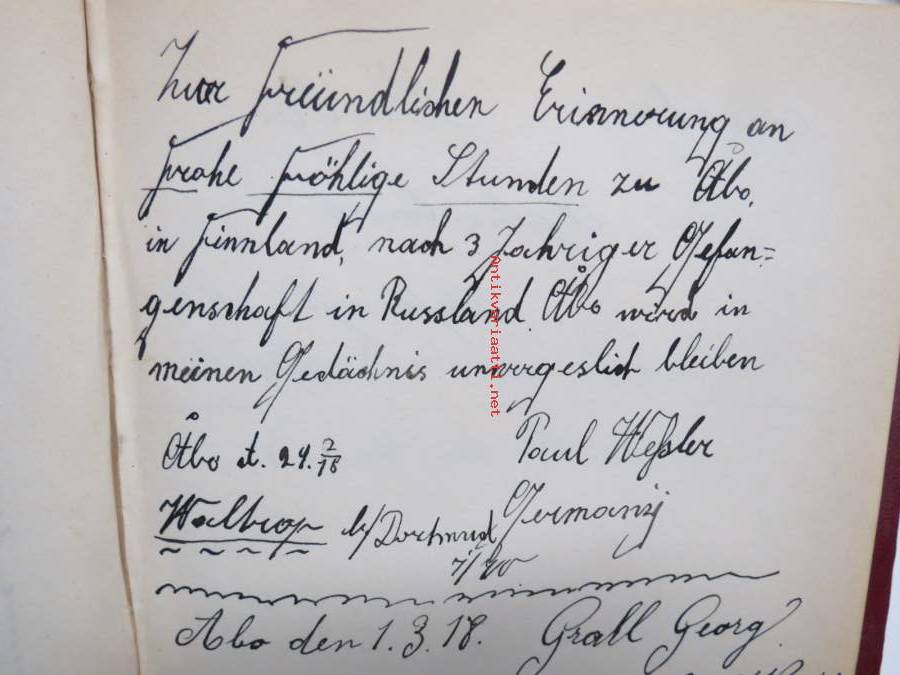 Zur Freündlichen Erinnerung an
Frohe fröhlige Stunden zu Åbo,
in Finnland, nach 3 Jahriger Gefan=
genschaft in Russland. Åbo wird in
meinen Gedächnis unvergeslich bleiben
Åbo d. 24. 2/18 Paul Weßler
Waltrop b/Dortmund Germany
i/W
Abo den 1.3.18. Grall Georg
antikvariaatti.net